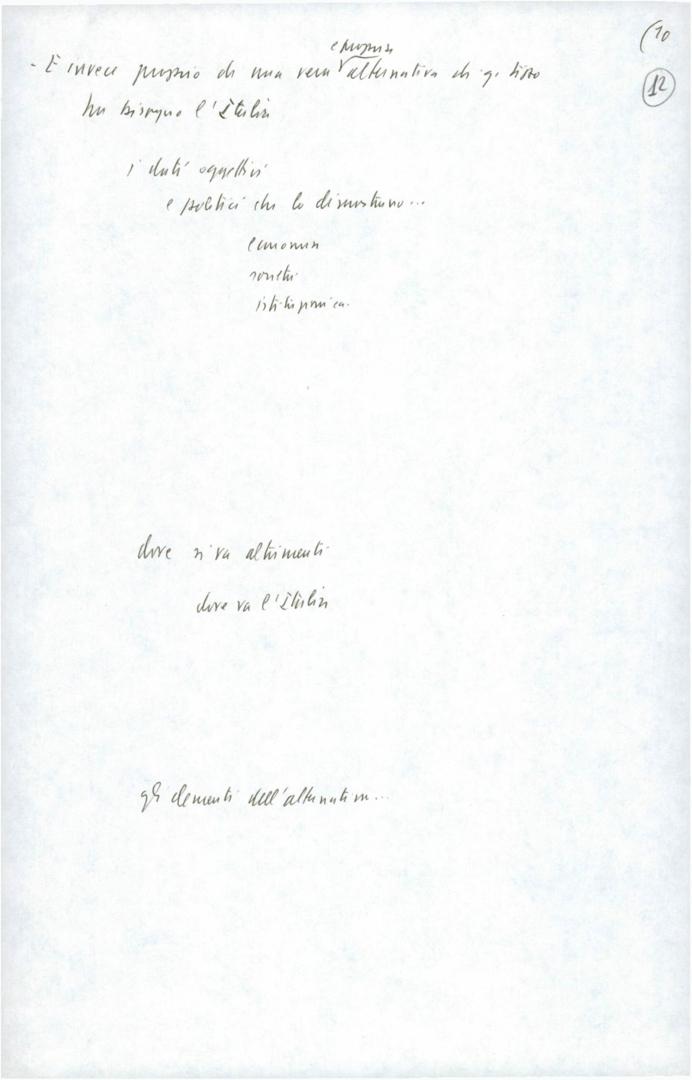 (10
12
e propria
- E invece proprio di una vera alternativa di q. tipo
ha bisogno l'Italia
i dati oggettivi
e politici che lo dimostrano...
economia
società
dove si va altrimenti
dove va l'Italia
gli elementi dell'alternativa...